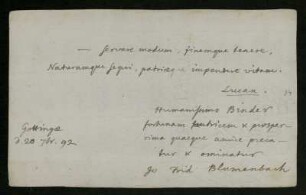 — servare modum, finemque tenere,
Naturamque sequi, patriæque impendere vitam.
Lucan.
Humanissimo Binder
fortunam fautricem & prosper-
rima quaeque animo preca-
tur & ominatur
Jo Frid Blumenbach
Gottingae
d. 20 7br. 92